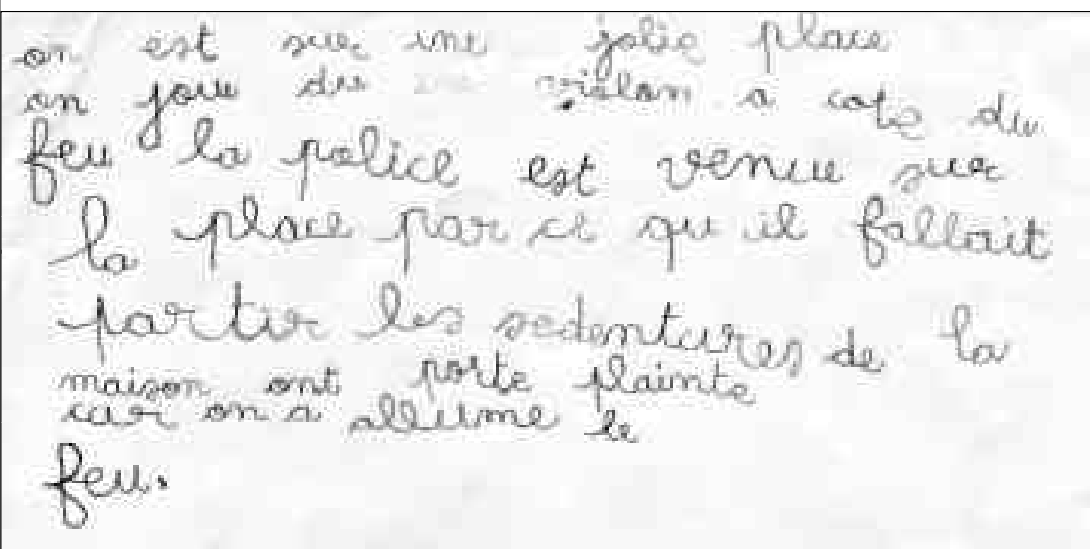 on est sur une jolie place
on joue du violon a cote du
feu la police est venue sur
la place par ce qu il fallait
partir les sedentures de la
maison ont porte plainte
car on a allume le
feu.